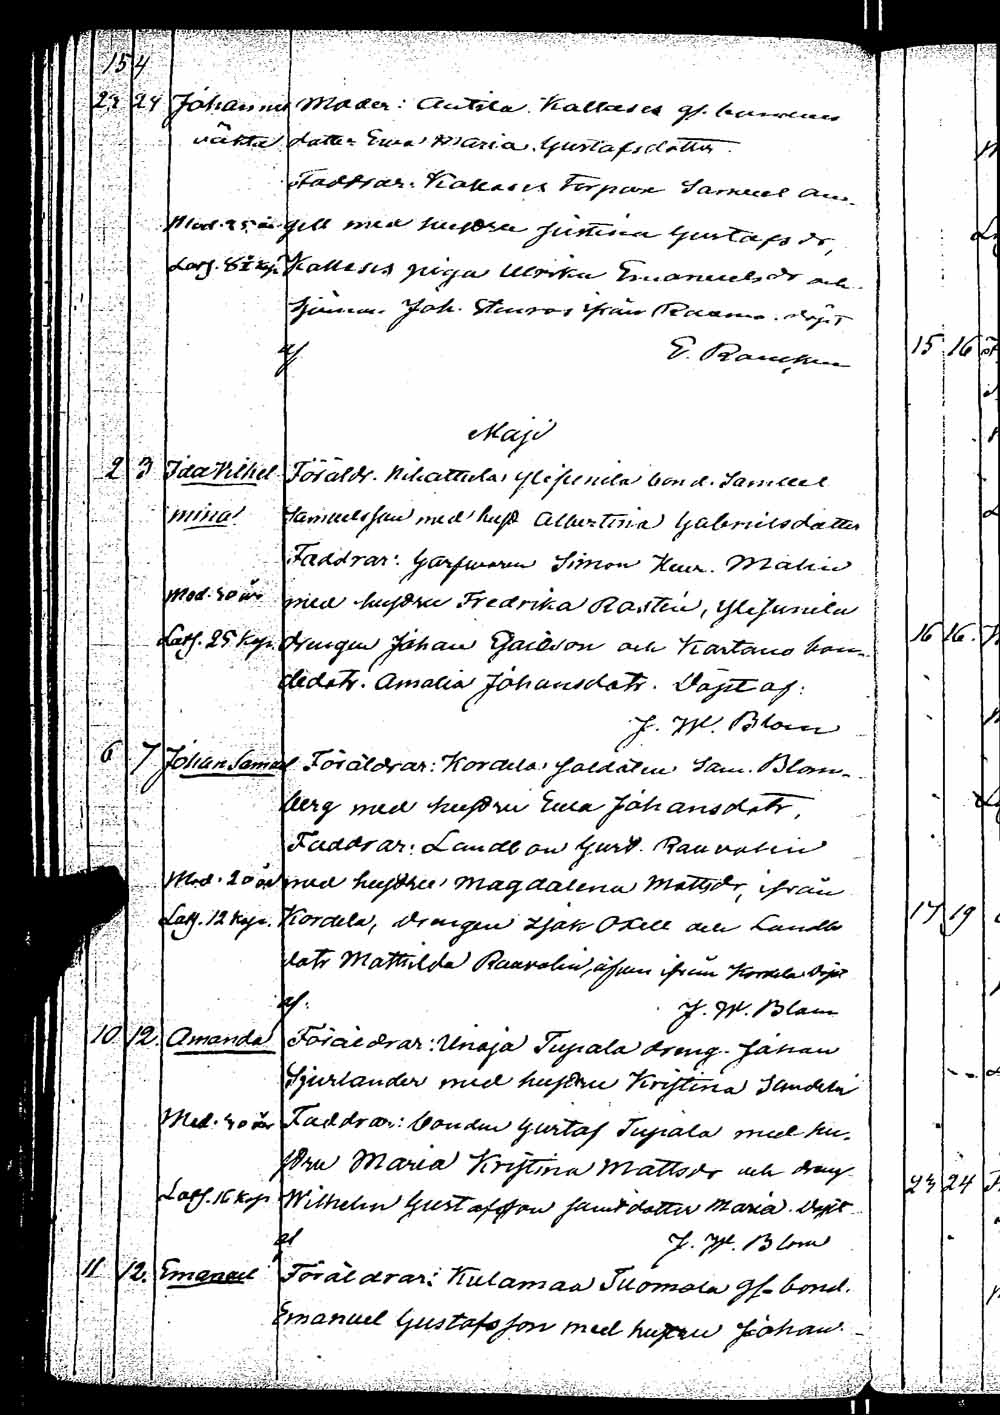 154
23 24 Johannes Moder: Anttila Kallases gf. bondens
oäkta dotter Eva Maria Gustafsdotter.
Faddrar: Kallases Torpare Samuel
Mod. 25 år gell med hustru Justina Gustafsdr,
Lösg. Kallases piga Ulrika Emanuelsdr och
Joh. Stenros ifrån Raumo. Döpt
af E. Rancken
Maji
2 3 Ida Vilhel Föräldr. Nihattula Ylisjunila bond. Samuel
mina Samuelsson med hust Albertina Gabrielsdotter
Faddrar: Garfvaren Simon Malin
Mod. 30 år med hustru Fredrika Rostén, Ylisjunila
Lösg. 25 Kop. drengen Johan och Kartano bon-
dedotr. Amalia Johansdotr. Döpt af:
J. W. Blom
6 7 Johan Samuel Föräldrar: Kordela soldaten Sam. Blom-
berg med hustru Eva Johansdotr,
Faddrar: Landbon Gust. Raavolin
Mod. 20 år med hustru Magdalena Mattsdr, ifrån
Lösg. 12 Kop. Kordela, drengen Isak Oxell och Landb
dotr Mathilda Raavolin, äfven ifrån Kordela Döpt
af: J. W. Blom
10 12. Amanda Föräldrar: Unaja Tupala dreng. Johan
Sjurlander med hustru Kristina Sandels
Mod. 30 år Faddrar: bonden Gustaf Tupala med hu-
stru Maria Kristina Mattsdr och dreng
Lösg. 16 Kop Wilhelm Gustafsson samt dotter Maria. Döpt
af J. W. Blom
11 12. Emanuel Föräldrar: Kulamaa Tuomola gf bond.
Emanuel Gustafsson med hustru Johan-
15 16
16 16.
17 19
23 24